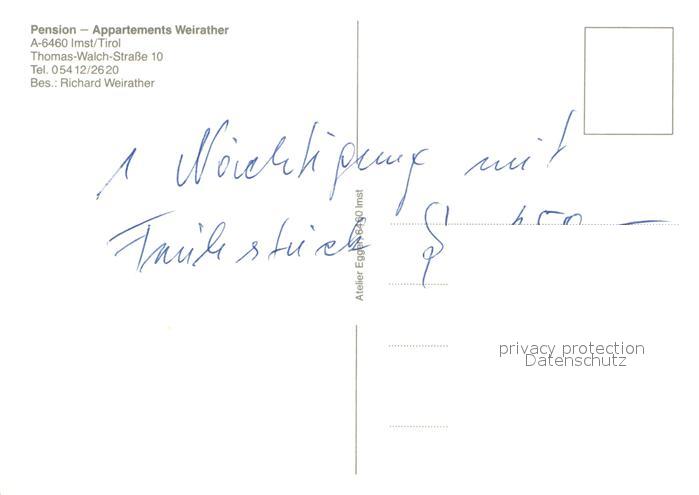 Pension — Appartements Weirather
A-6460 Imst/Tirol
Thomas-Walch-Straße 10
Tel. 05412/2620
Bes.: Richard Weirather
1 Nächtigung mit
Frühstück S
Atelier Egger 6460 Imst
privacy protection
Datenschutz